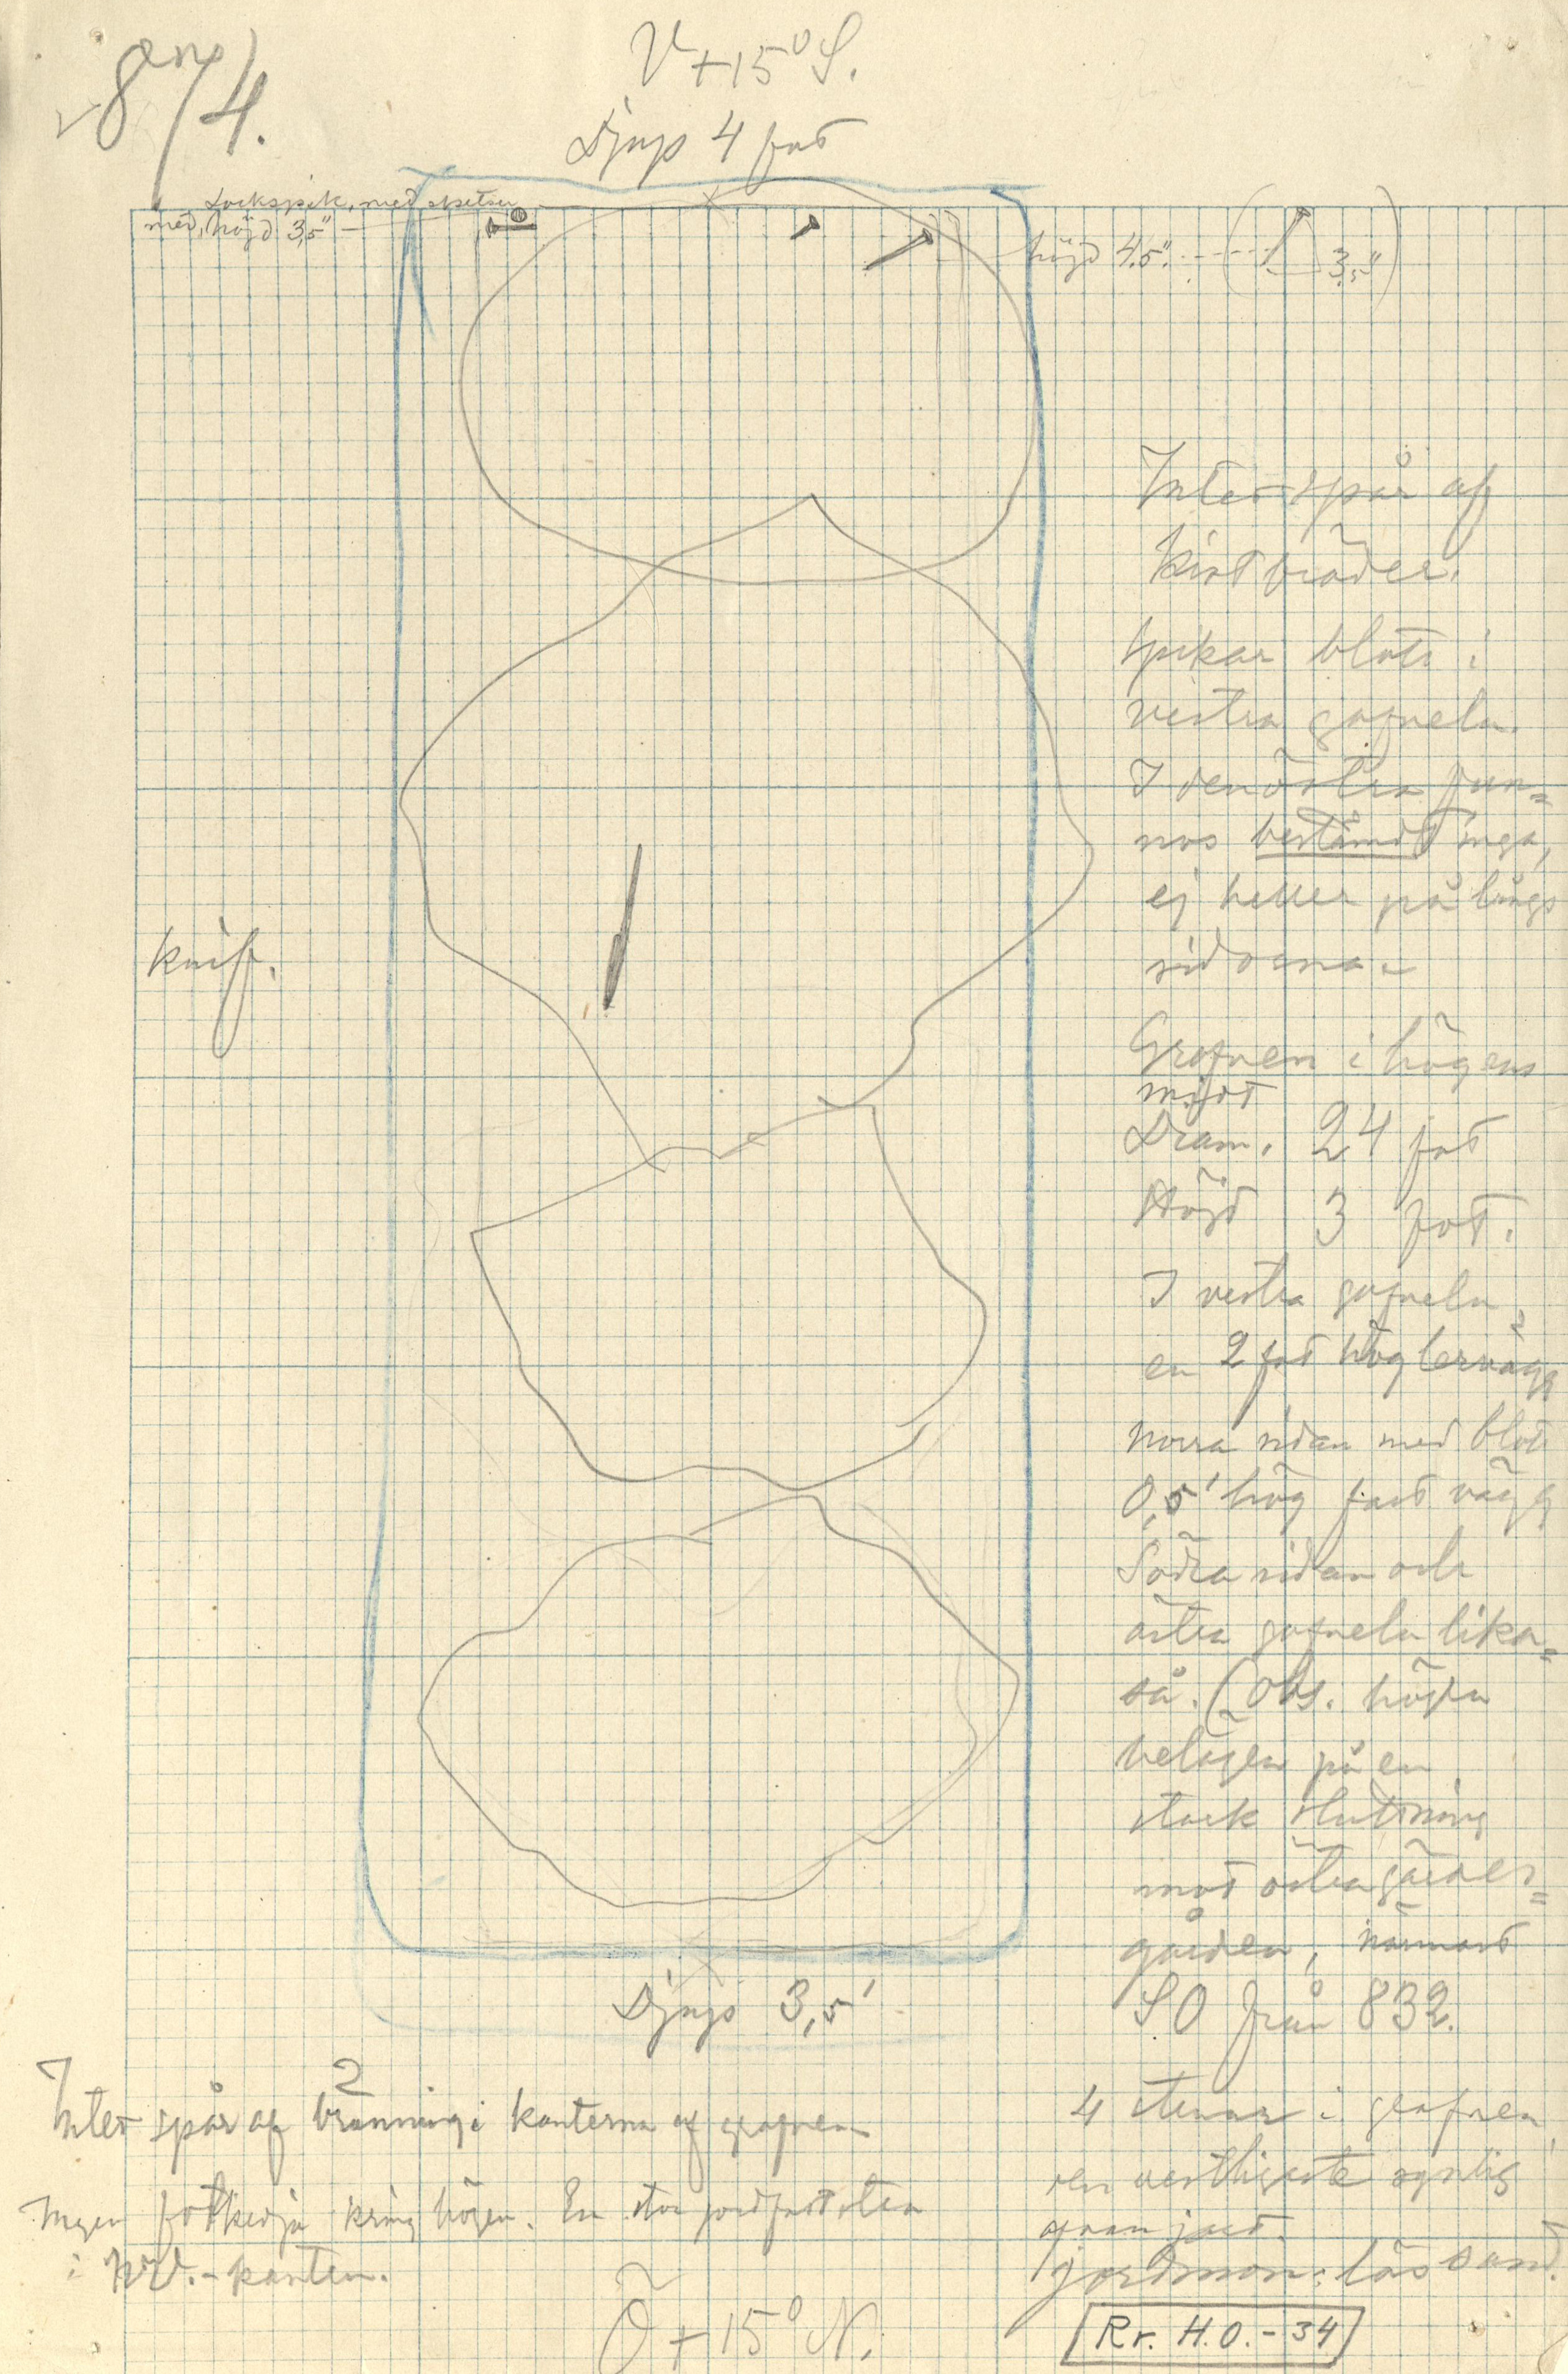 874.
V+15° S.
Djup 4 fot
Lockspik, med spetsen
ned, höjd 3,5"
höjd 4.5". 3,5"
Intet spår af
kistbräder.
Spikar blott i
vestra gafveln.
I den östra fun=
nos bestämdt inga,
ej heller på lång
sidorna.
knif.
Grafven i högens
midt
Diam. 24 fot
Höjd 3 fot.
I vestra gafveln
en 2 fot hög lervägg
norra sidan med blott
0,5' hög fast vägg
Södra sidan och
östra gafveln lika=
så. (Obs. högen
belägen på en
stark sluttning
mot östra gärdes=
gården, närmast
SO från 832.
Djup 3,5'
Intet spår af bränning i kanterna af grafven
2
Ingen fotkedja kring högen. En stor jordfast sten
i NV.-kanten.
4 stenar i grafven
den vestligaste synlig
ofvan jord.
jordmon: lös sand.
Ö+15° N.
Rr. H.O.-34